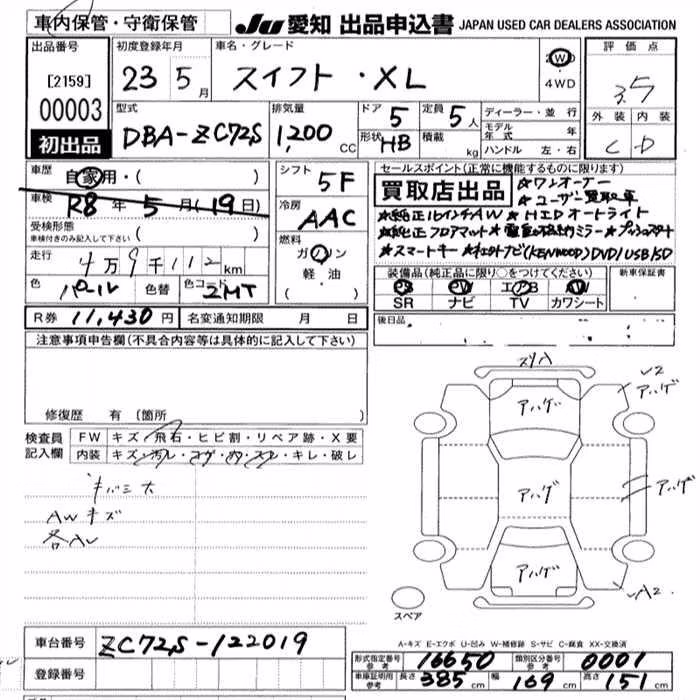 車内保管・守衛保管
JU 愛知 出品申込書 JAPAN USED CAR DEALERS ASSOCIATION
出品番号
[2159]
00003
初出品
初度登録年月
23 5月
車名・グレード
スイフト・XL
2WD
・4WD
評価点
3.5
外装 内装
C D
型式
DBA-ZC72S
排気量
1,200 CC
ドア 5
形状 HB
定員 5人
積載 kg
ディーラー・並行
モデル年式 年
ハンドル 左・右
車歴
自家用・( )
車検
R8年5月(19日)
受検形態
車検付きのみ記入して下さい ( )
走行
4万9千112km
色 パール 色替 色コード ZMT
シフト
5F
冷房
AAC
燃料
ガソリン
軽・油
( )
セールスポイント(正常に機能するものに限ります)
買取店出品
★ワンオーナー
★ユーザー買取車
★純正16インチAW ★HIDオートライト
★純正フロアマット
★プッシュスタート
★スマートキー ★社外ナビ(KENWOOD)DVD/USB/SD
装備品(純正品に限り○をつけてください)
PS PW エアB AW
SR ナビ TV カワシート
新車保証書
R券 11,430円 名変通知期限 月 日
後日品
注意事項申告欄(不具合内容等は具体的に記入して下さい)
修復歴 有(箇所
検査員記入欄
FW キズ・飛石・ヒビ割・リペア跡・X要
内装 キズ・汚レ・コゲ・穴・スレ・キレ・破レ
AWキズ
スリ八
アハゲ
アハゲ
アハゲ
アハゲ
アハゲ
A2
スペア
A-キズ E-エクボ U-凹み W-補修跡 S-サビ C-腐食 XX-交換済
車台番号 ZC72S-122019
登録番号
形式指定番号参考 16650 類別区分番号参考 0001
車庫証明用参考 長さ 385cm 幅 169cm 高さ 151cm